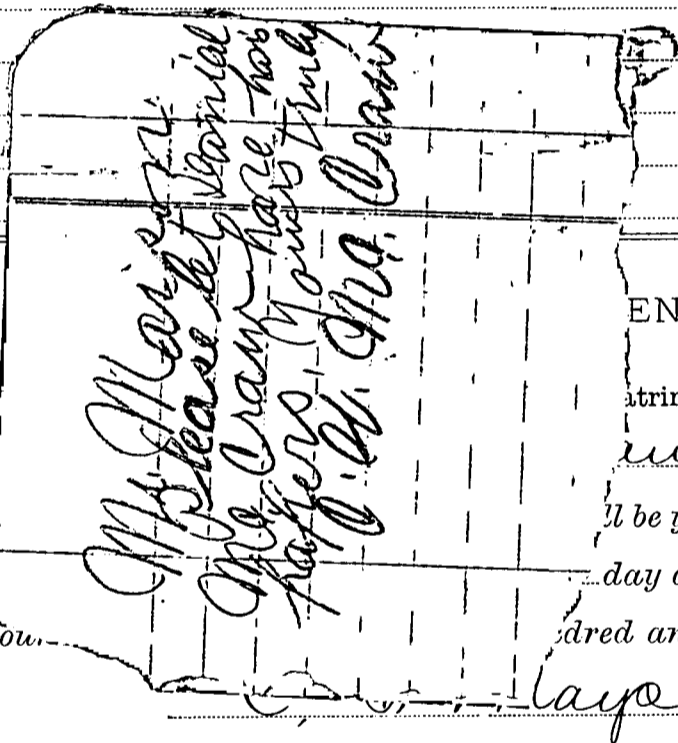 Mr. Maison,
Please let Daniel
Mc Craw have his
papers, Yours truly
A. H. Mc. Craw
EN
atrin
ll be y
day o
ou.
dred an